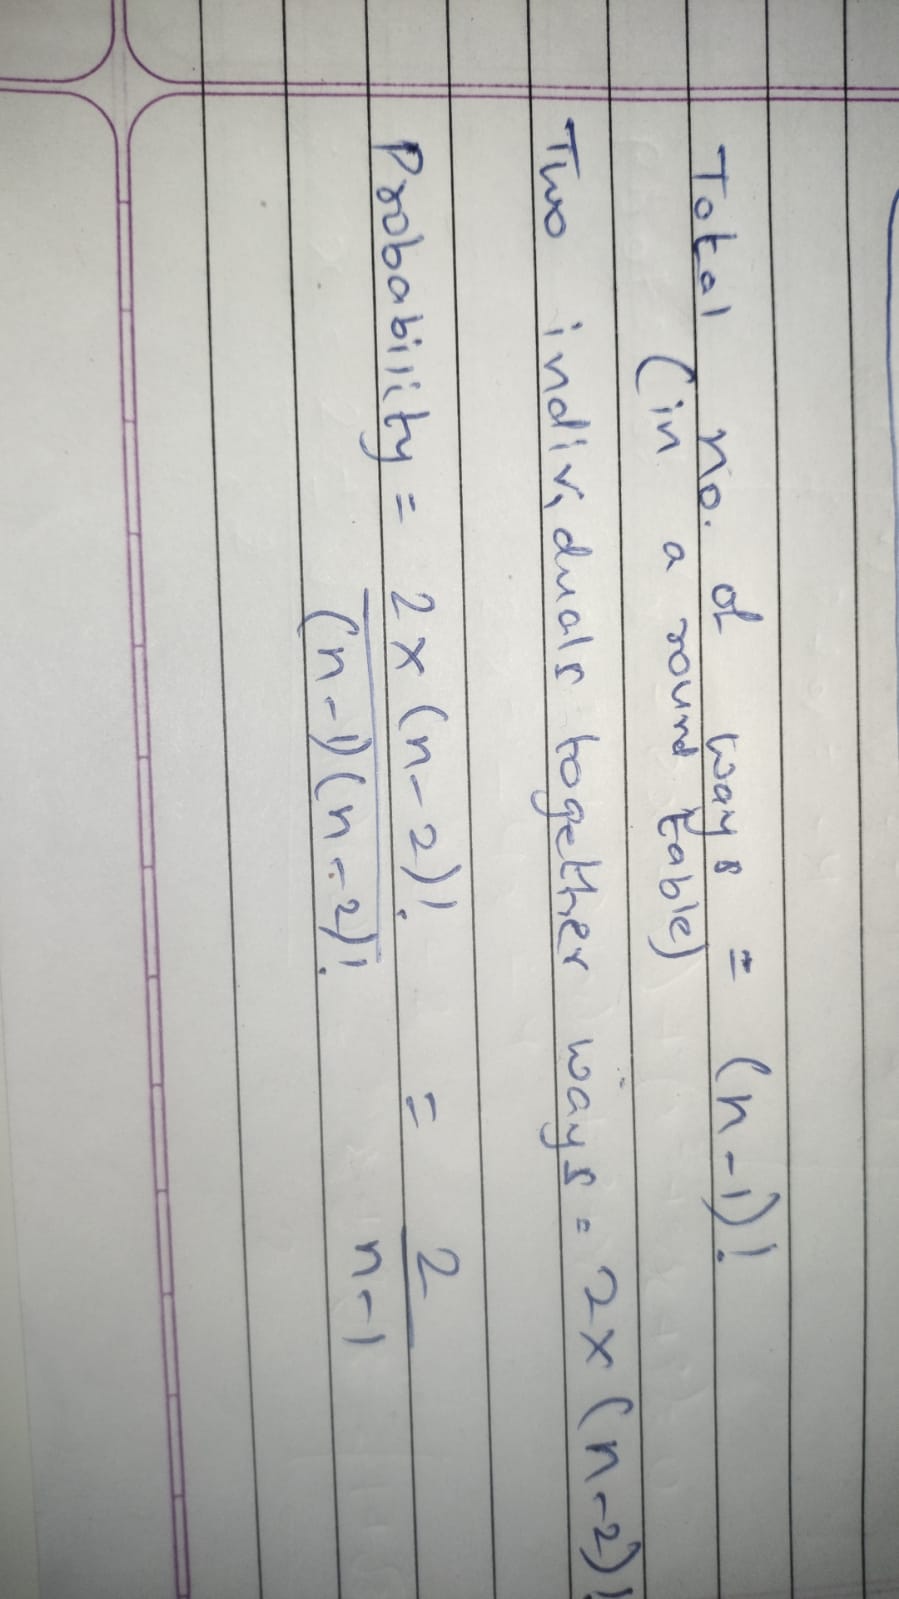 Total no. of ways = (n-1)!
(in a round table)
Two individuals together ways = 2x(n-2)!
Probability = 2x(n-2)! = 2
(n-1)(n-2)! n-1